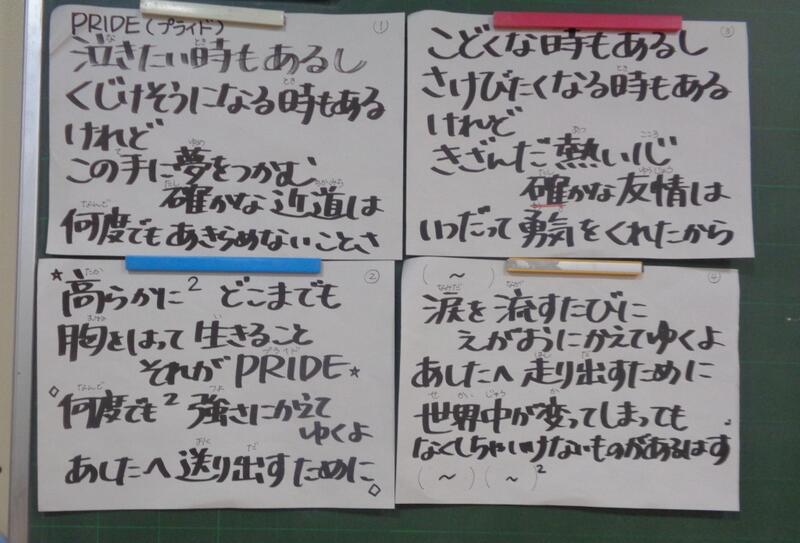 PRIDE(プライド) ①
泣きたい時もあるし
くじけそうになる時もある
けれど
この手に夢をつかむ
確かな近道は
何度でもあきらめないことさ
☆高らかに² どこまでも ②
胸をはって生きること
それがPRIDE☆
◇何度でも² 強さにかえて
ゆくよ
あしたへ送り出すために◇
こどくな時もあるし ③
さけびたくなる時もある
けれど
きざんだ熱い心
確かな友情は
いつだって勇気をくれたから
(☆~☆) ④
涙を流すたびに
えがおにかえてゆくよ
あしたへ走り出すために
世界中が変ってしまっても
なくしちゃいけないものがあるはず
(☆~☆)(◇~◇)²